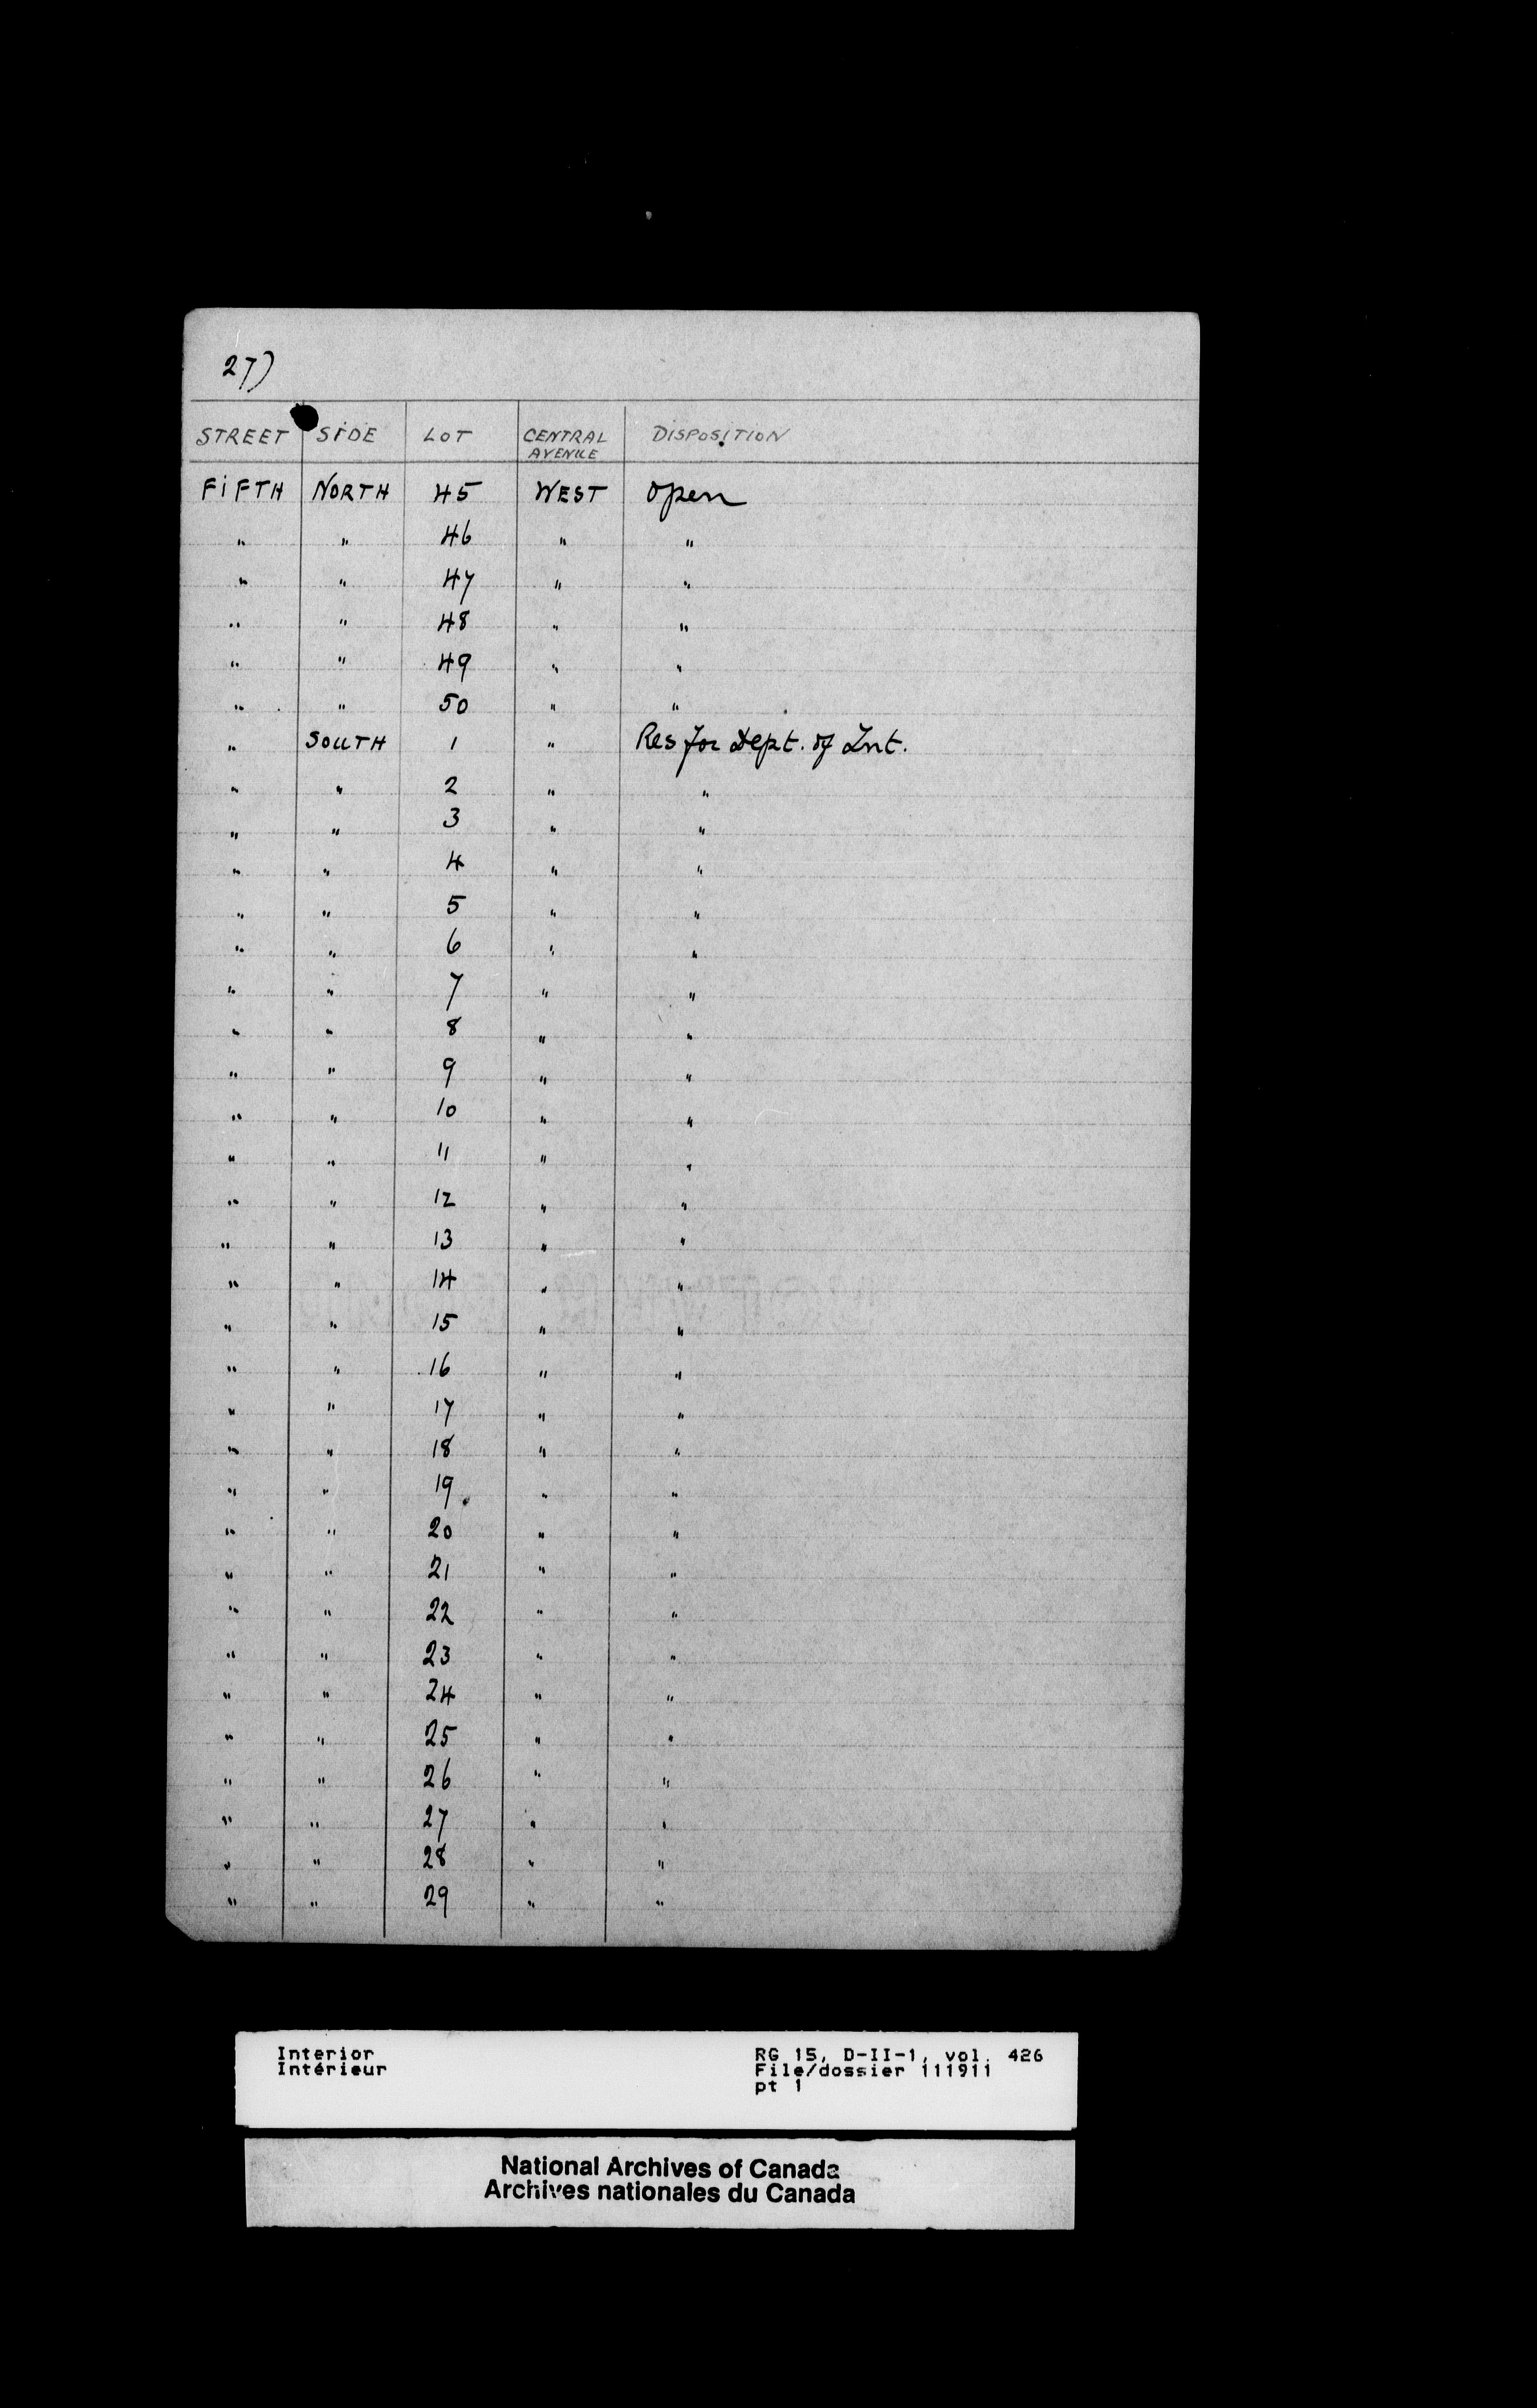 27)
STREET SIDE LOT CENTRAL AVENUE DISPOSITION
FIFTH NORTH 45 WEST open
" " 46 " "
" " 47 " "
" " 48 " "
" " 49 " "
" " 50 " "
" SOUTH 1 " Res for Dept. of Int.
" " 2 " "
" " 3 " "
" " 4 " "
" " 5 " "
" " 6 " "
" " 7 " "
" " 8 " "
" " 9 " "
" " 10 " "
" " 11 " "
" " 12 " "
" " 13 " "
" " 14 " "
" " 15 " "
" " 16 " "
" " 17 " "
" " 18 " "
" " 19 " "
" " 20 " "
" " 21 " "
" " 22 " "
" " 23 " "
" " 24 " "
" " 25 " "
" " 26 " "
" " 27 " "
" " 28 " "
" " 29 " "
Interior RG 15, D-II-1, vol. 426
Intérieur File/dossier 111911
pt 1
National Archives of Canada
Archives nationales du Canada